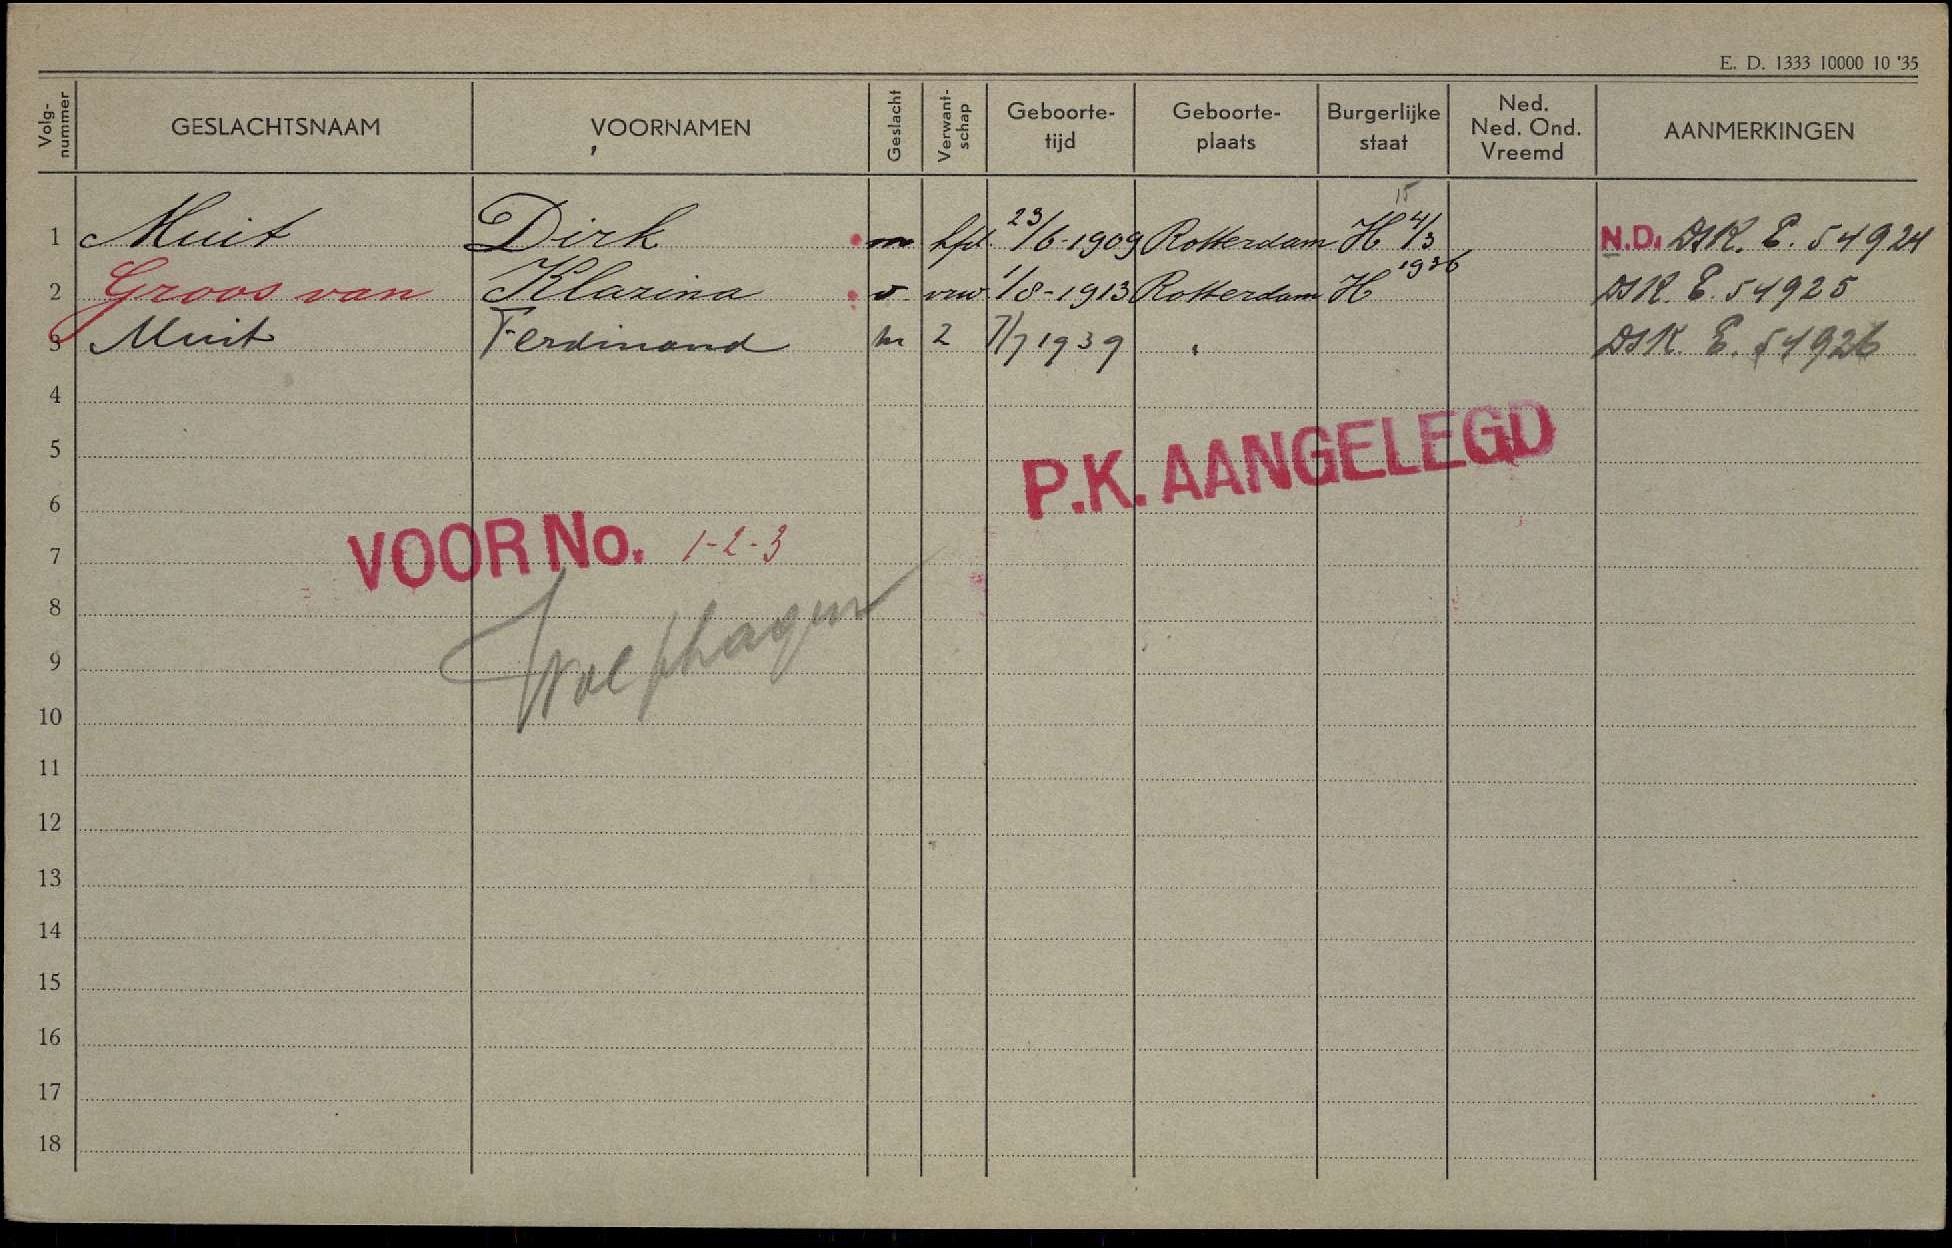 E. D. 1333 10000 10 '35
Volg-nummer GESLACHTSNAAM VOORNAMEN Geslacht Verwant-schap Geboorte-tijd Geboorte-plaats Burgerlijke staat Ned. Ned. Ond. Vreemd AANMERKINGEN
15
1 Muit Dirk m hfd. 23/6-1909 Rotterdam H 4/3 N.D. DSK. E. 54924
1936
2 Groos van Klazina v vrw 1/8-1913 Rotterdam H DSK. E. 54925
3 Muit Ferdinand m 2 7/7 1939 " DSK. E. 54926
4
P.K. AANGELEGD
5
6
VOOR No. 1-2-3
7
8
9
10
11
12
13
14
15
16
17
18